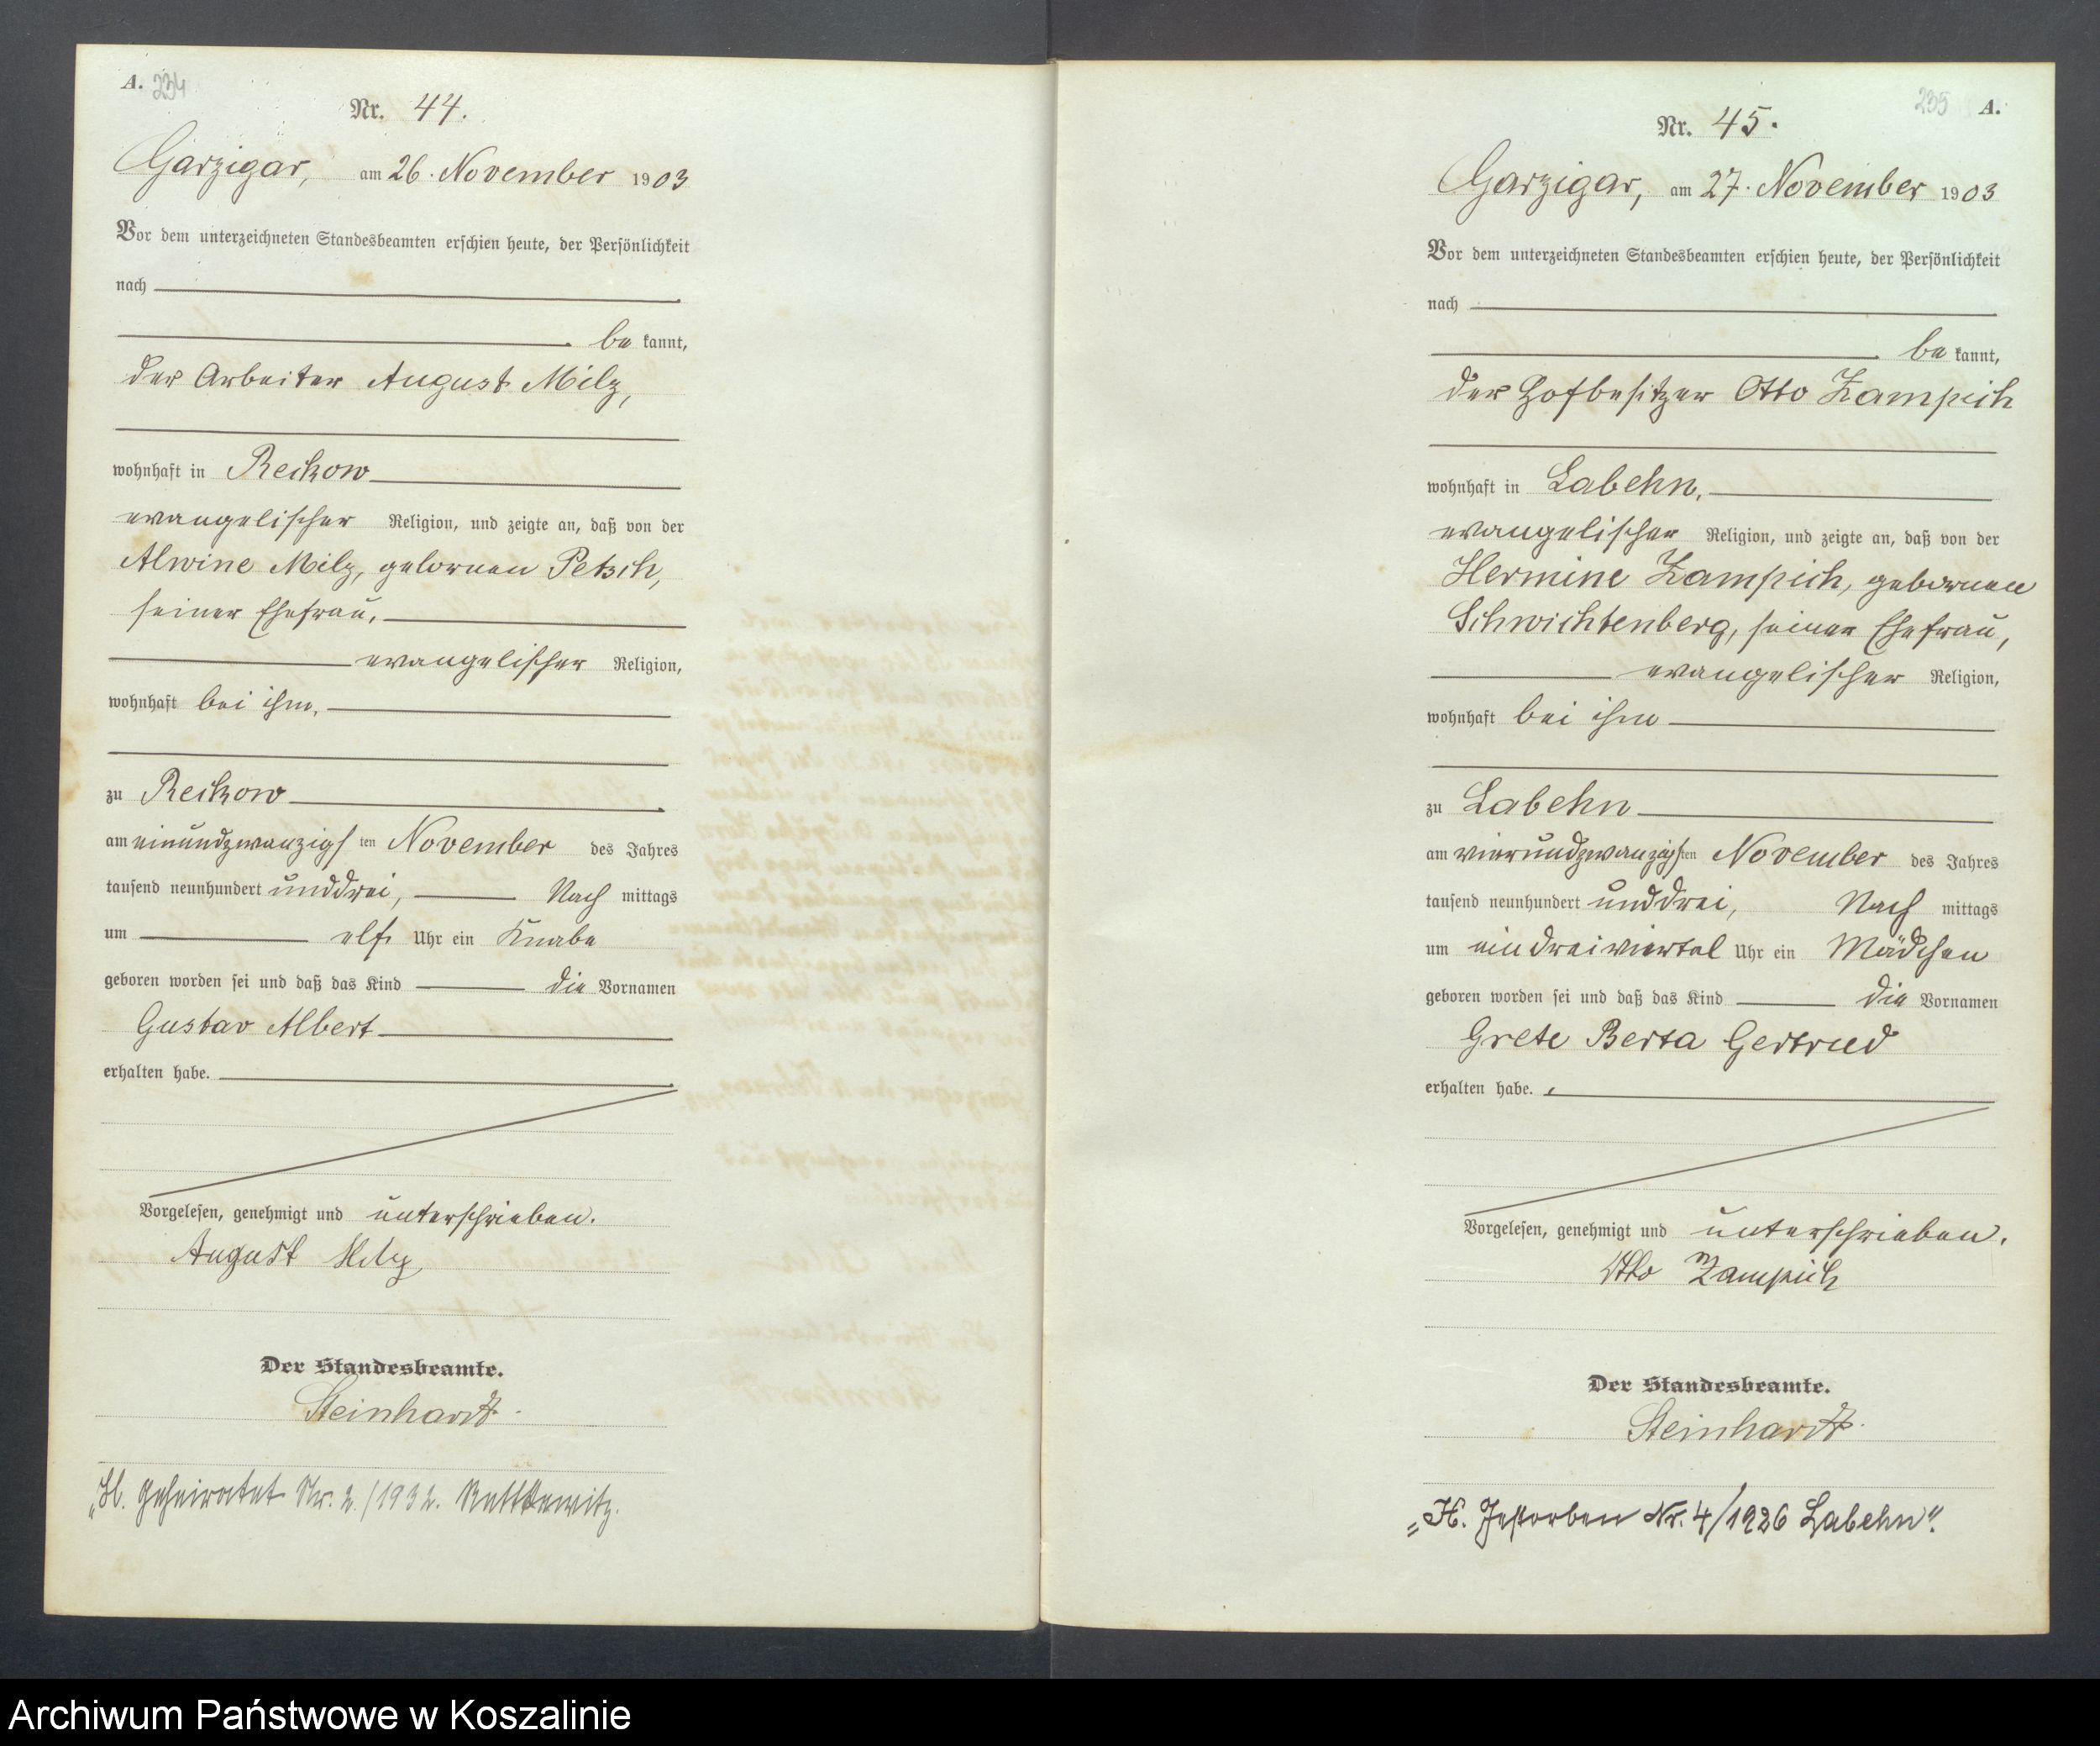 A. 234
Nr. 44.
Garzigar, am 26. November 1903
Vor dem unterzeichneten Standesbeamten erschien heute, der Persönlichkeit
nach
be kannt,
der Arbeiter August Milz,
wohnhaft in Reckow
evangelischer Religion, und zeigte an, daß von der
Alwine Milz, gebornen Petsch,
seiner Ehefrau,
evangelischer Religion,
wohnhaft bei ihm,
zu Reckow
am einundzwanzigsten November des Jahres
tausend neunhundert unddrei, Nach mittags
um elf Uhr ein Knabe
geboren worden sei und daß das Kind die Vornamen
Gustav Albert
erhalten habe.
Vorgelesen, genehmigt und unterschrieben.
August Milz
Der Standesbeamte.
Steinhardt.
„H. geheiratet Nr. 2./1932.
235 A.
Nr. 45.
Garzigar, am 27. November 1903
Vor dem unterzeichneten Standesbeamten erschien heute, der Persönlichkeit
nach
be kannt,
der Hofbesitzer Otto Zampich
wohnhaft in Labehn,
evangelischer Religion, und zeigte an, daß von der
Hermine Zampich, gebornen
Schwichtenberg, seiner Ehefrau,
evangelischer Religion,
wohnhaft bei ihm
zu Labehn
am vierundzwanzigsten November des Jahres
tausend neunhundert unddrei, Nach mittags
um ein dreiviertel Uhr ein Mädchen
geboren worden sei und daß das Kind die Vornamen
Grete Berta Gertrud
erhalten habe.
Vorgelesen, genehmigt und unterschrieben.
Otto Zampich
Der Standesbeamte.
Steinhardt.
„H. Gestorben Nr. 4/1926 Labehn".
Archiwum Państwowe w Koszalinie